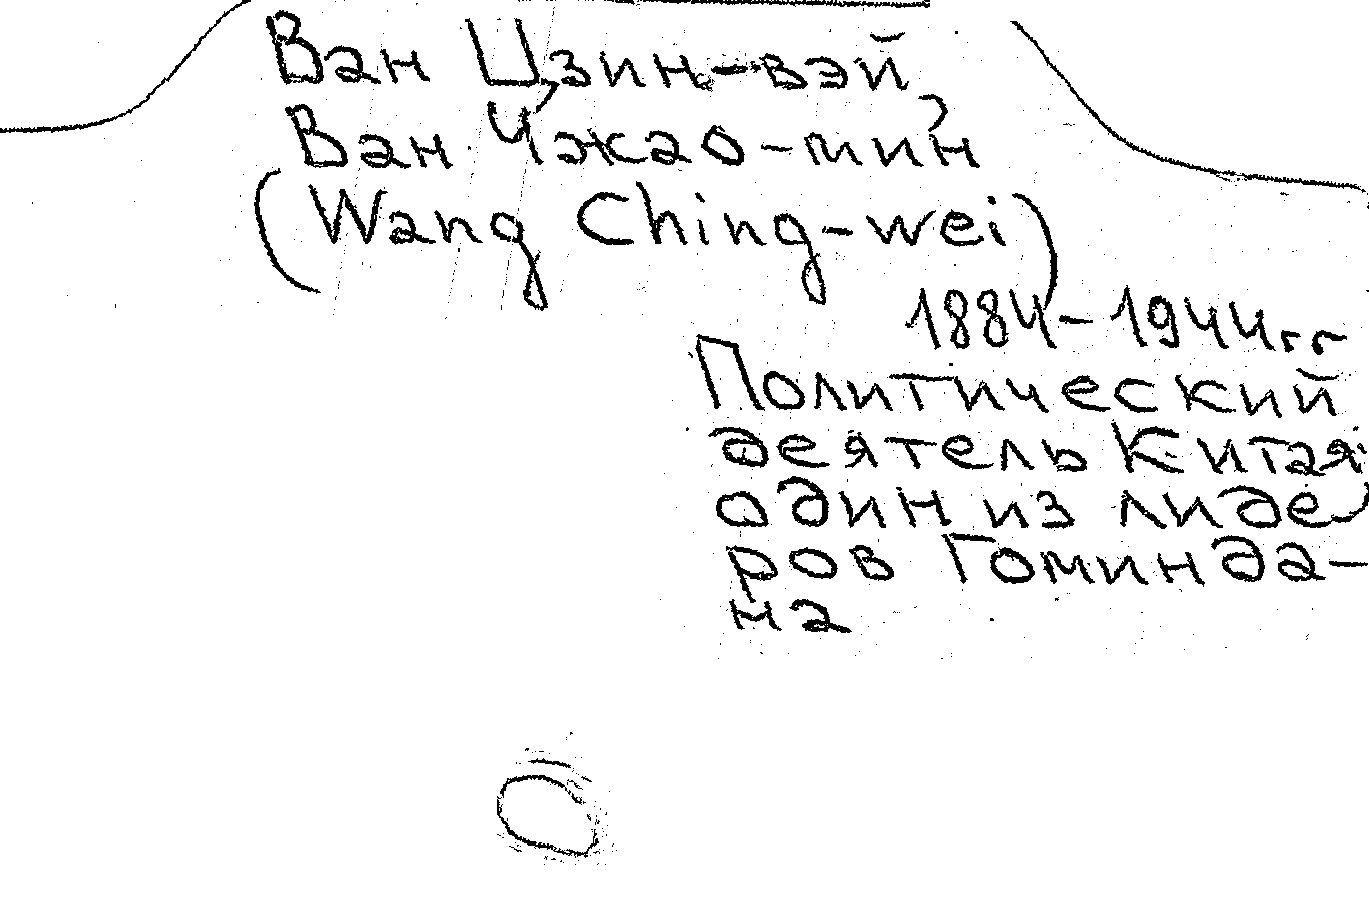 Ван Цзин-вэй,
Ван Чжао-мин
(Wang Ching-wei)
1884-1944гг
Политический
деятель Китая
один из лиде
ров Гоминда-
на